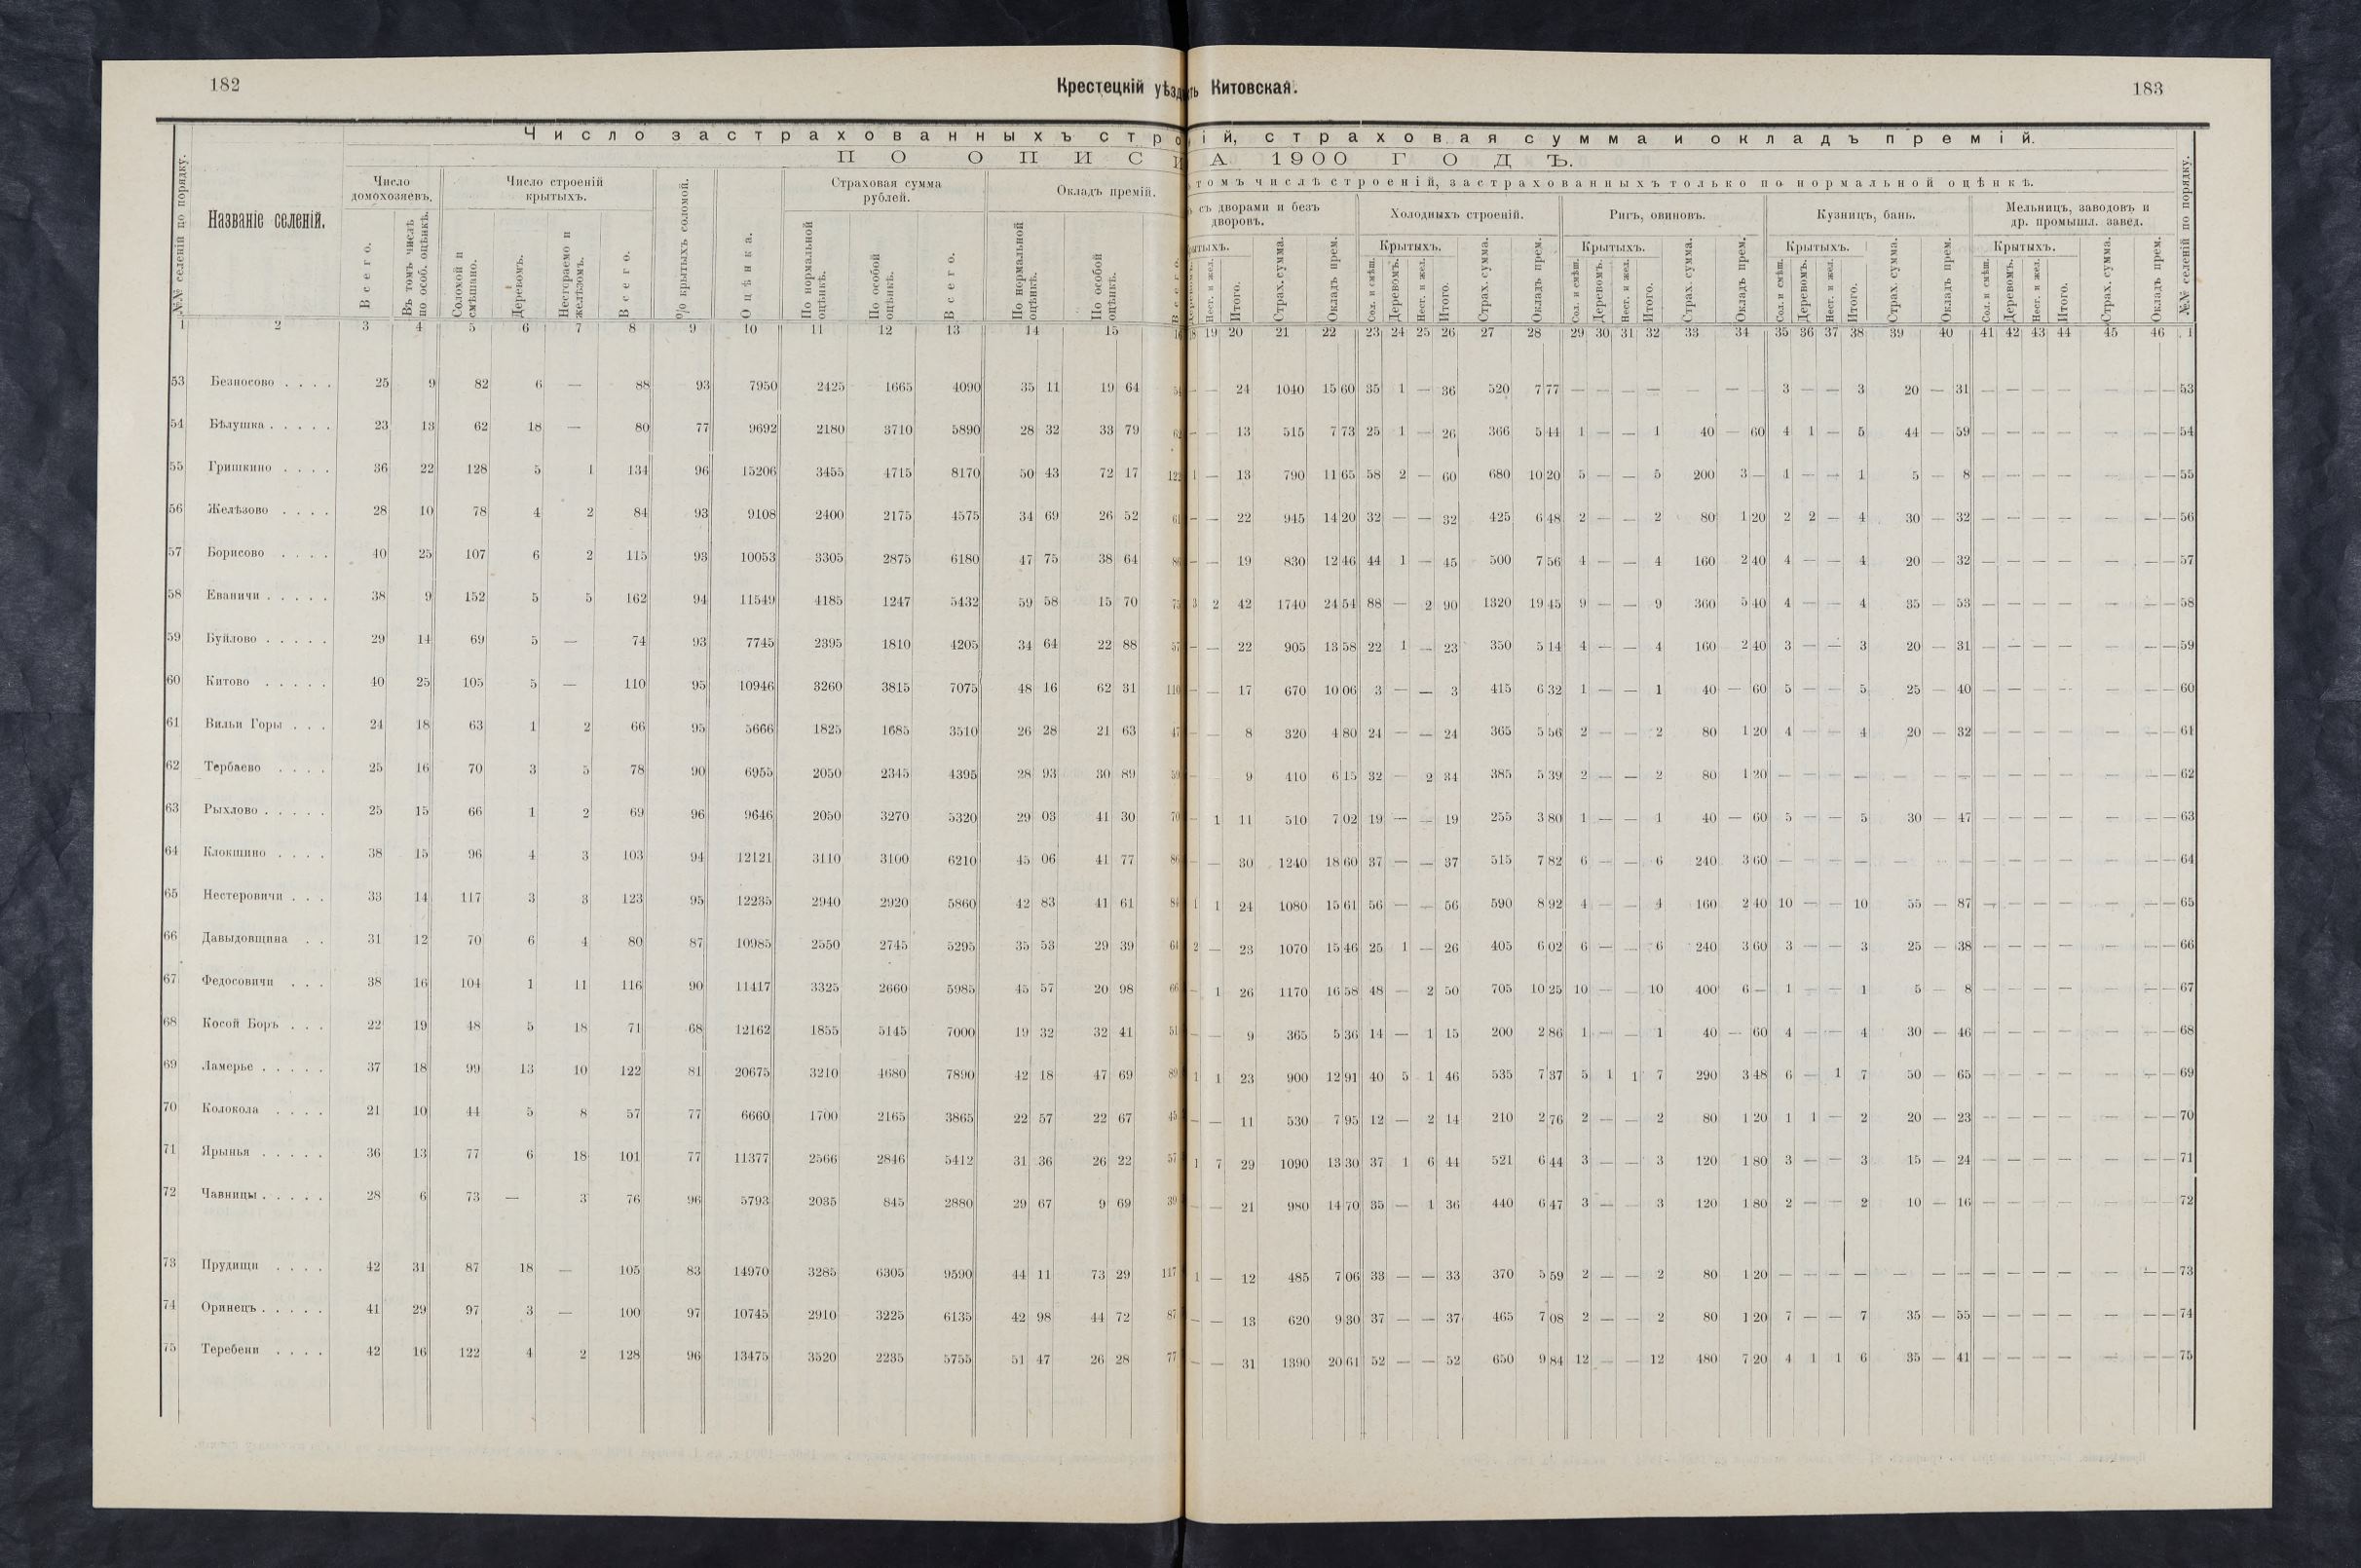 182
Крестецкій уѣзд
ть Китовская.
183
Число застрахованныхъ стро
ій, страховая сумма и окладъ премій.
ПО ОПИСИ
А 1900 ГОДЪ.
томъ числѣ строеній, застрахованныхъ только по нормальной оцѣнкѣ.
№№ селеній по порядку.
Названіе селеній.
Число домохозяевъ.
Всего.
Въ томъ числѣ по особ. оцѣнкѣ.
Число строеній крытыхъ.
Соломой и смѣшано.
Деревомъ.
Несгораемо и желѣзомъ.
Всего.
% крытыхъ соломой.
Оцѣнка.
Страховая сумма рублей.
По нормальной оцѣнкѣ.
По особой оцѣнкѣ.
Всего.
Окладъ премій.
По нормальной оцѣнкѣ.
По особой оцѣнкѣ.
съ дворами и безъ дворовъ.
Нест. и жел. Итого. Страх. сумма. Окладъ прем.
Холодныхъ строеній.
Крытыхъ.
Сол. и смѣш. Деревомъ. Нест. и жел. Итого. Страх. сумма. Окладъ прем.
Ригъ, овиновъ.
Крытыхъ.
Сол. и смѣш. Деревомъ. Нест. и жел. Итого. Страх. сумма. Окладъ прем.
Кузницъ, бань.
Крытыхъ.
Сол. и смѣш. Деревомъ. Нест. и жел. Итого. Страх. сумма. Окладъ прем.
Мельницъ, заводовъ и др. промышл. завед.
Крытыхъ.
Сол. и смѣш. Деревомъ. Нест. и жел. Итого. Страх. сумма. Окладъ прем.
№№ селеній по порядку.
1 2 3 4 5 6 7 8 9 10 11 12 13 14 15 19 20 21 22 23 24 25 26 27 28 29 30 31 32 33 34 35 36 37 38 39 40 41 42 43 44 45 46 1
53 Безносово . . . . 25 9 82 6 — 88 93 7950 2425 1665 4090 35 11 19 64 — — 24 1040 15 60 35 1 — 36 520 7 77 — — — — — — — 3 — — 3 20 — 31 — — — — — — — 53
54 Бѣлушка . . . . . 23 13 62 18 — 80 77 9692 2180 3710 5890 28 32 33 79 — — 13 515 7 73 25 1 — 26 366 5 44 1 — — 1 40 — 60 4 1 — 5 44 — 59 — — — — — — — 54
55 Гришкино . . . . 36 22 128 5 1 134 96 15206 3455 4715 8170 50 43 72 17 122 1 — 13 790 11 65 58 2 — 60 680 10 20 5 — — 5 200 3 — 1 — — 1 5 — 8 — — — — — — — 55
56 Желѣзово . . . . 28 10 78 4 2 84 93 9108 2400 2175 4575 34 69 26 52 61 — — 22 945 14 20 32 — — 32 425 6 48 2 — — 2 80 1 20 2 2 — 4 30 — 32 — — — — — — — 56
57 Борисово . . . . 40 25 107 6 2 115 93 10053 3305 2875 6180 47 75 38 64 — — 19 830 12 46 44 1 — 45 500 7 56 4 — — 4 160 2 40 4 — — 4 20 — 32 — — — — — — — 57
58 Еваничи . . . . . 38 9 152 5 5 162 94 11549 4185 1247 5432 59 58 15 70 75 3 2 42 1740 24 54 88 — 2 90 1320 19 45 9 — — 9 360 5 40 4 — — 4 35 — 53 — — — — — — — 58
59 Буйлово . . . . . 29 14 69 5 — 74 93 7745 2395 1810 4205 34 64 22 88 57 — — 22 905 13 58 22 1 — 23 350 5 14 4 — — 4 160 2 40 3 — — 3 20 — 31 — — — — — — — 59
60 Китово . . . . . 40 25 105 5 — 110 95 10946 3260 3815 7075 48 16 62 31 110 — — 17 670 10 06 3 — — 3 415 6 32 1 — — 1 40 — 60 5 — — 5 25 — 40 — — — — — — — 60
61 Вильи Горы . . . 24 18 63 1 2 66 95 5666 1825 1685 3510 26 28 21 63 47 — — 8 320 4 80 24 — — 24 365 5 56 2 — — 2 80 1 20 4 — — 4 20 — 32 — — — — — — — 61
62 Тербаево . . . . 25 16 70 3 5 78 90 6955 2050 2345 4395 28 93 30 89 59 — 9 410 6 15 32 — 2 34 385 5 39 2 — — 2 80 1 20 — — — — — — — — — — — — — — 62
63 Рыхлово . . . . . 25 15 66 1 2 69 96 9646 2050 3270 5320 29 03 41 30 70 — 1 11 510 7 02 19 — — 19 255 3 80 1 — — 1 40 — 60 5 — — 5 30 — 47 — — — — — — — 63
64 Клокшино . . . . 38 15 96 4 3 103 94 12121 3110 3100 6210 45 06 41 77 86 — — 30 1240 18 60 37 — — 37 515 7 82 6 — — 6 240 3 60 — — — — — — — — — — — — — — 64
65 Нестеровичи . . . 33 14 117 3 3 123 95 12235 2940 2920 5860 42 83 41 61 84 1 1 24 1080 15 61 56 — — 56 590 8 92 4 — — 4 160 2 40 10 — — 10 55 — 87 — — — — — — — 65
66 Давыдовщина . . 31 12 70 6 4 80 87 10985 2550 2745 5295 35 53 29 39 64 2 — 23 1070 15 46 25 1 — 26 405 6 02 6 — — 6 240 3 60 3 — — 3 25 — 38 — — — — — — — 66
67 Федосовичи . . . 38 16 104 1 11 116 90 11417 3325 2660 5985 45 57 20 98 66 — 1 26 1170 16 58 48 — 2 50 705 10 25 10 — — 10 400 6 — 1 — — 1 5 — 8 — — — — — — — 67
68 Косой Боръ . . . 22 19 48 5 18 71 68 12162 1855 5145 7000 19 32 32 41 51 — — 9 365 5 36 14 — 1 15 200 2 86 1 — — 1 40 — 60 4 — — 4 30 — 46 — — — — — — — 68
69 Ламерье . . . . . 37 18 99 13 10 122 81 20675 3210 4680 7890 42 18 47 69 89 1 1 23 900 12 91 40 5 1 46 535 7 37 5 1 1 7 290 3 48 6 — 1 7 50 — 65 — — — — — — — 69
70 Колокола . . . . 21 10 44 5 8 57 77 6660 1700 2165 3865 22 57 22 67 45 — — 11 530 7 95 12 — 2 14 210 2 76 2 — — 2 80 1 20 1 1 — 2 20 — 23 — — — — — — — 70
71 Ярынья . . . . . 36 13 77 6 18 101 77 11377 2566 2846 5412 31 36 26 22 57 1 7 29 1090 13 30 37 1 6 44 521 6 44 3 — — 3 120 1 80 3 — — 3 15 — 24 — — — — — — — 71
72 Чавницы . . . . . 28 6 73 — 3 76 96 5793 2035 845 2880 29 67 9 69 39 — — 21 980 14 70 35 — 1 36 440 6 47 3 — — 3 120 1 80 2 — — 2 10 — 16 — — — — — — — 72
73 Прудищи . . . . 42 31 87 18 — 105 83 14970 3285 6305 9590 44 11 73 29 117 1 — 12 485 7 06 33 — — 33 370 5 59 2 — — 2 80 1 20 — — — — — — — — — — — — — — 73
74 Оринецъ . . . . . 41 29 97 3 — 100 97 10745 2910 3225 6135 42 98 44 72 87 — — 13 620 9 30 37 — — 37 465 7 08 2 — — 2 80 1 20 7 — — 7 35 — 55 — — — — — — — 74
75 Теребени . . . . 42 16 122 4 2 128 96 13475 3520 2235 5755 51 47 26 28 77 — — 31 1390 20 61 52 — — 52 650 9 84 12 — — 12 480 7 20 4 1 1 6 35 — 41 — — — — — — — 75